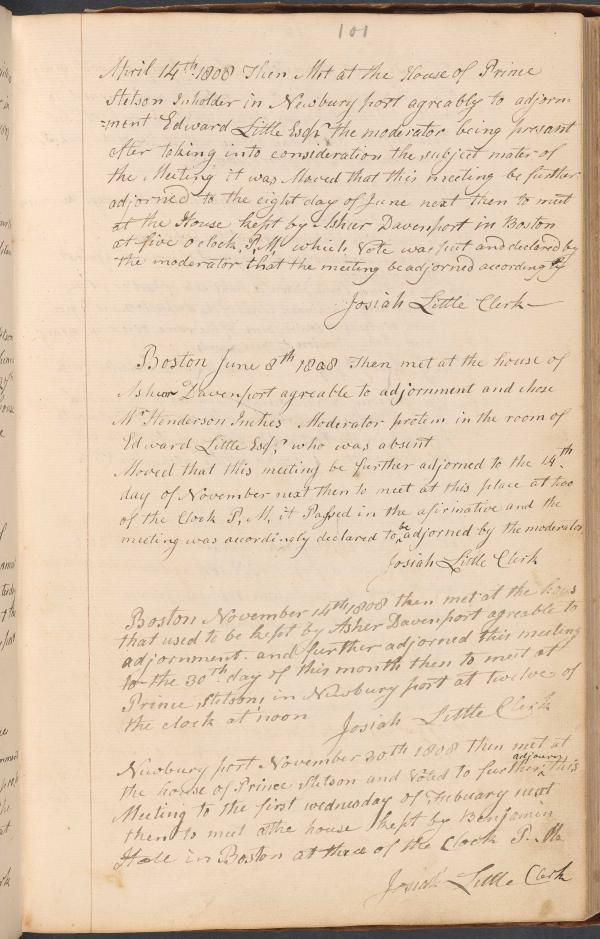 101
April 14th 1808 Then Met at the House of Prince
Stetson Inholder in Newbury port agreably to adjorn-
=ment Edward Little Esqr the moderator being present
after taking into consideration the subject mater of
the Meeting it was Moved that this meeting be further
adjorned to the eight day of June next then to meet
at the House kept by Asher Davenport in Boston
at five o clock, P, M, which, Vote was put and declared by
the moderator that the meeting be adjorned accordingly
Josiah Little Clerk
Boston June 8th 1808 Then met at the house of
Asher Davenport agreable to adjornment and chose
Mr Henderson Inches Moderator protem in the room of
Edward Little Esqr, who was absent
Moved that this meeting be further adjorned to the 14th
day of November next then to meet at this place at too
of the Clock P, M, it Passed in the afirmative and the
meeting was accordingly declared to be adjorned by the moderator
Josiah Little Clerk
Boston November 14th 1808 then met at the hous
that used to be kept by Asher Davenport agreable to
adjornment. and further adjorned this meeting
to the 30th day of this month then to meet at
Prince Stetsons, in Newbury port at twelve of
the clock at noon
Josiah Little Clerk
Newbury port November 30th 1808 then met at
the house of Prince Stetson and Voted to further adjourn this
Meeting to the first wednesday of Febuary next
then to meet at the house kept by Benjamin
Hale in Boston at three of the Clock P. M
Josiah Little Clerk